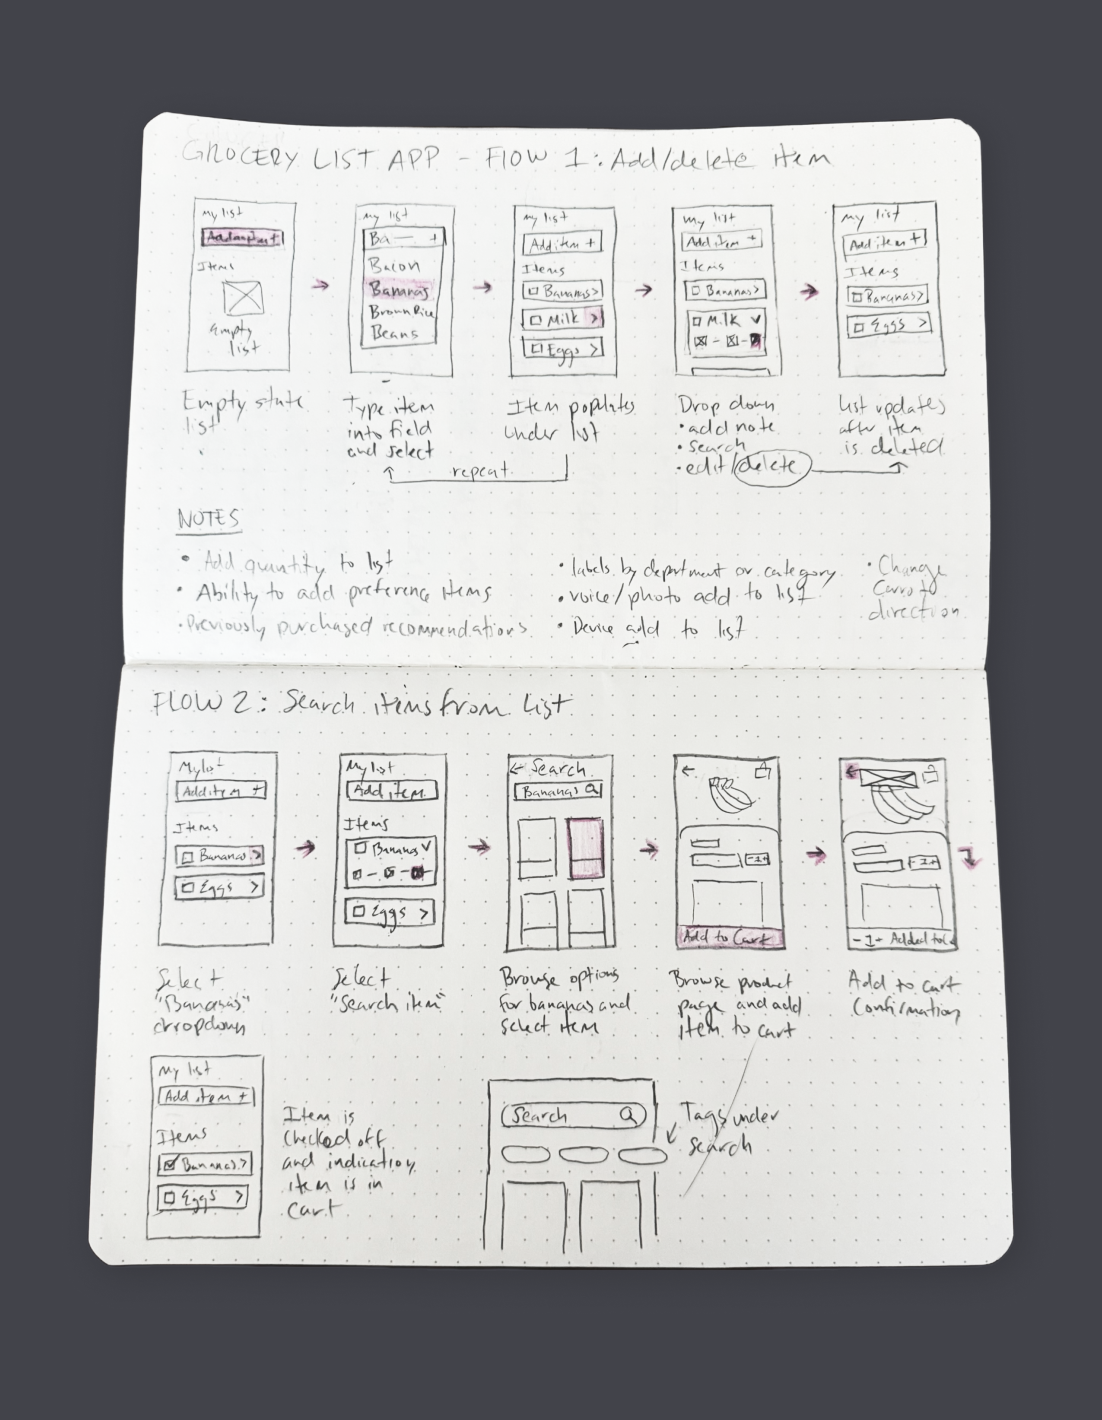 GROCERY LIST APP - FLOW 1: Add/delete item
My list
Add item +
Items
Empty
list
My list
Ba— +
Bacon
Bananas
Brown Rice
Beans
My list
Add item +
Items
Bananas >
Milk >
Eggs >
My list
Add item +
Items
Bananas >
Milk
My list
Add item +
Items
Bananas >
Eggs >
Empty state
list
Type item
into field
and select
Item populates
under list
repeat
Drop down
• add note
• search
• edit/delete
List updates
after item
is deleted
NOTES
• Add quantity to list
• Ability to add preference items
• Previously purchased recommendations
• labels by department or category
• voice/photo add to list
• Device add to list
• Change
direction
FLOW 2: Search items from List
My list
Add item +
Items
Bananas >
Eggs >
My list
Add item
Items
Bananas
Eggs >
← Search
Bananas
←
-1+
Add to Cart
←
-1+
-1+ Added to
Select
"Bananas"
dropdown
Select
"Search item"
Browse options
for bananas and
select item
Browse product
page and add
item to cart
Add to cart
Confirmation
My list
Add item +
Items
Bananas >
Eggs >
Item is
checked off
and indication
item is in
cart
Search
Tags under
search